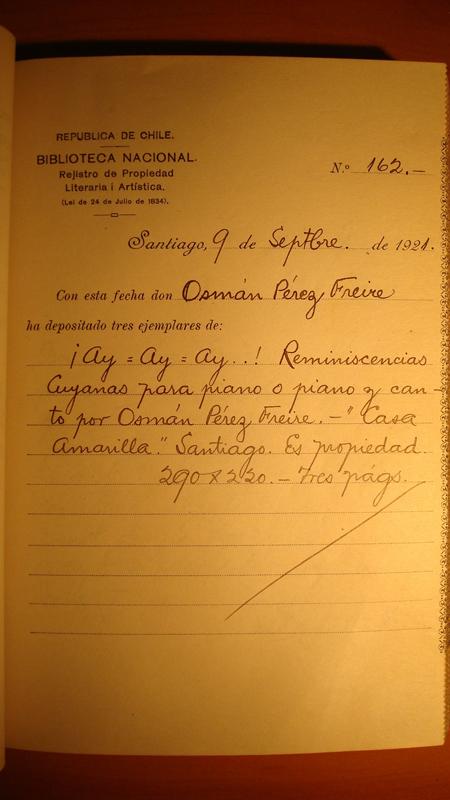 REPUBLICA DE CHILE.
BIBLIOTECA NACIONAL.
Rejistro de Propiedad
Literaria i Artística.
(Lei de 24 de Julio de 1834).
N.º 162.—
Santiago, 9 de Septbre. de 1921.
Con esta fecha don Osmán Pérez Freire
ha depositado tres ejemplares de:
¡Ay = Ay = Ay..! Reminiscencias
Cuyanas para piano o piano y can-
to por Osmán Pérez Freire.—"Casa
Amarilla." Santiago. Es propiedad.
290 x 220.— Tres págs.